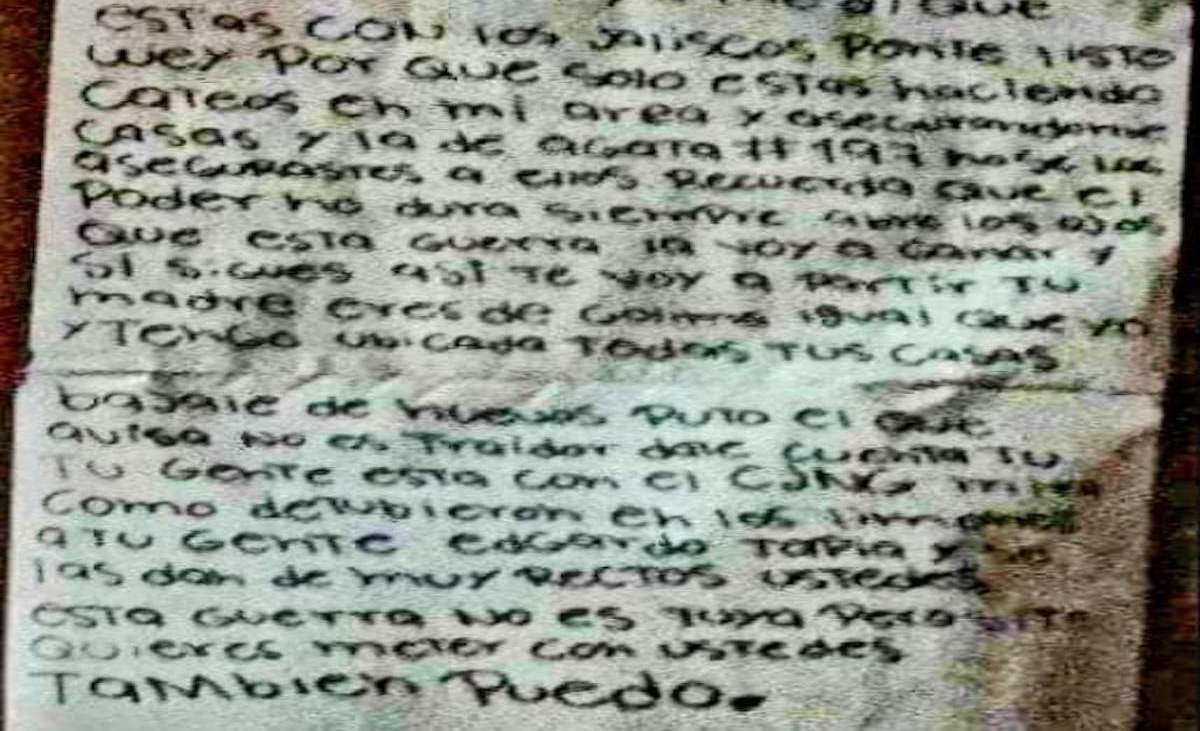 que
estas CON los Jaliscos Ponte listo
wey Por que solo estas haciendo
Cateos en mi area y asegurandome
casas y la de agata #197 no se las
asegurastes a ellos Recuerda que el
Poder no dura siempre abre los ojos
que esta guerra la voy a ganar y
si sigues asi te voy a partir tu
madre eres de Colima igual que yo
y Tengo ubicada Todas Tus casas
bajale de huevos Puto el que
avisa No es Traidor date cuenta Tu
TU Gente esta con el CJNG mira
Como detubieron en los limones
a TU Gente edgardo Tapia y se
las dan de muy Rectos ustedes
esta guerra No es tuya Pero si te
Quieres meter con ustedes
Tambien Puedo.